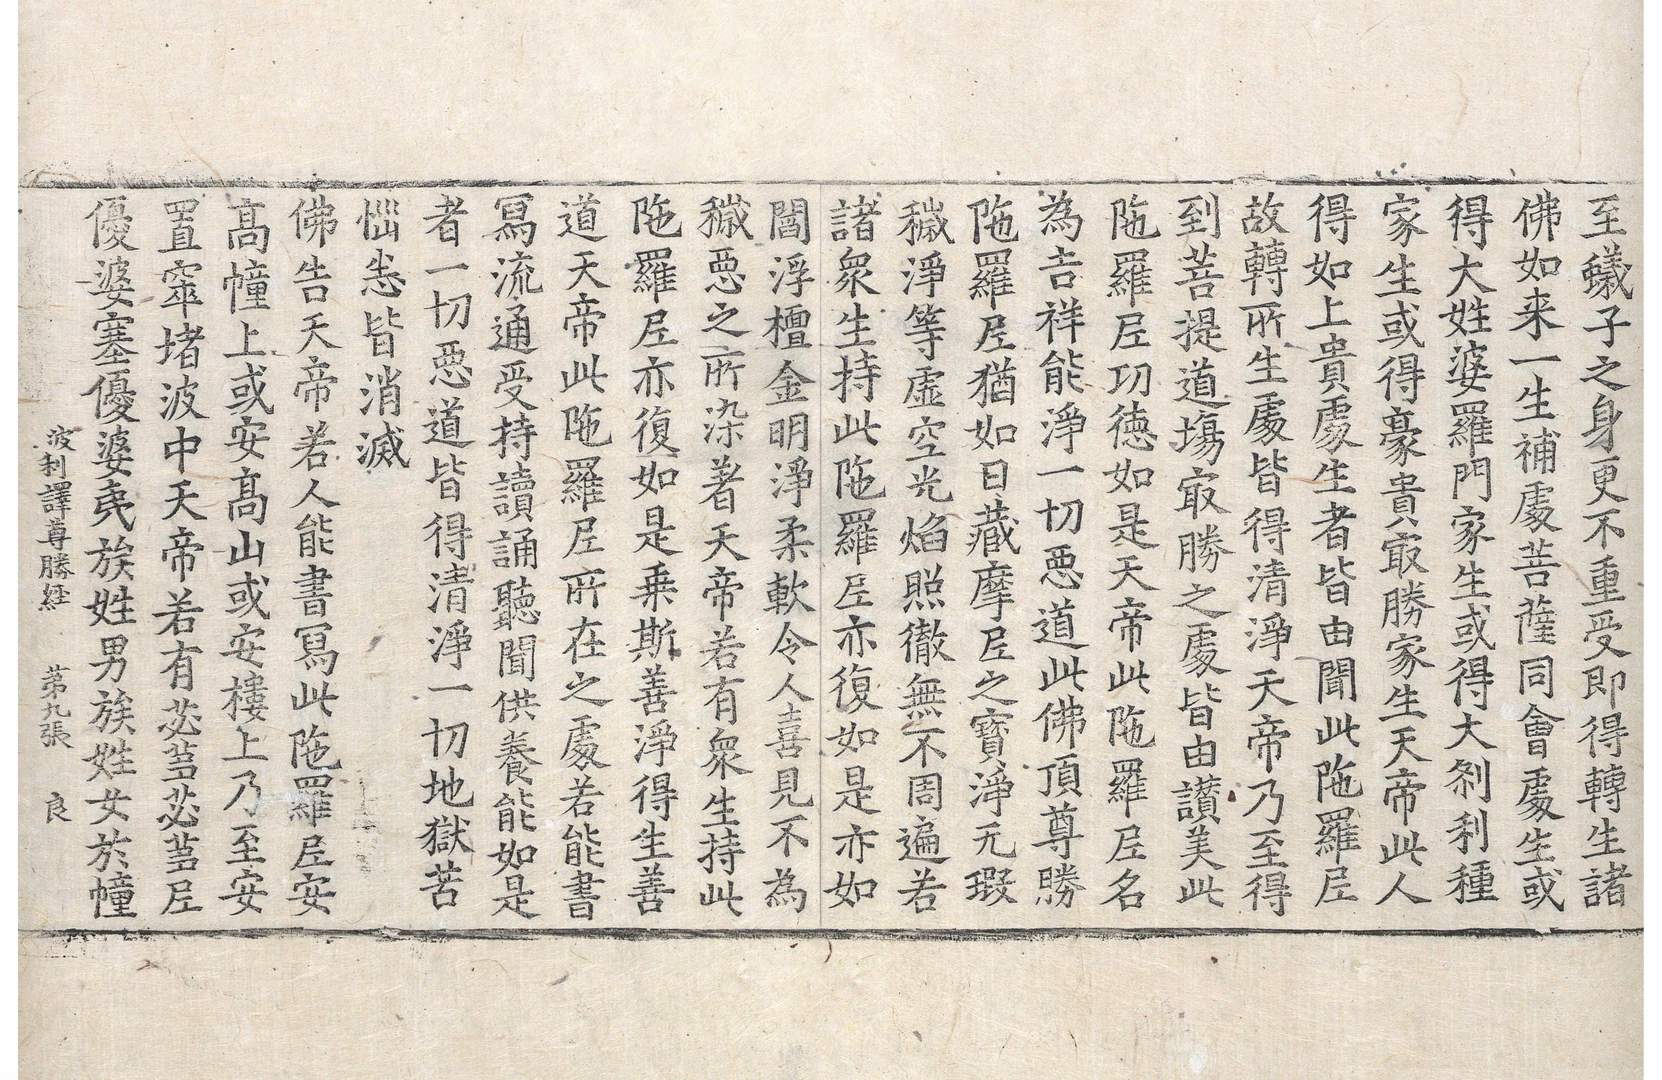 至蟻子之身更不重受即得轉生諸
佛如来一生補處菩薩同會處生或
得大姓婆羅門家生或得大刹利種
家生或得豪貴冣勝家生天帝此人
得如上貴處生者皆由聞此陁羅尼
故轉所生處皆得清淨天帝乃至得
到菩提道塲冣勝之處皆由讃美此
陁羅尼功徳如是天帝此陁羅尼名
為吉祥能淨一切惡道此佛頂尊勝
陁羅尼猶如日藏摩尼之寳淨无瑕
穢淨等虛空光焰照徹無不周遍若
諸衆生持此陁羅尼亦復如是亦如
閻浮檀金明淨柔軟令人喜見不為
穢惡之所染著天帝若有衆生持此
陁羅尼亦復如是乗斯善淨得生善
道天帝此陁羅尼所在之處若能書
寫流通受持讀誦聽聞供養能如是
者一切惡道皆得清淨一切地獄苦
惱恚皆消滅
佛告天帝若人能書寫此陁羅尼安
髙幢上或安髙山或安樓上乃至安
置窣堵波中天帝若有苾芻苾芻尼
優婆塞優婆夷族姓男族姓女於幢
波利譯尊勝經 苐九張 良